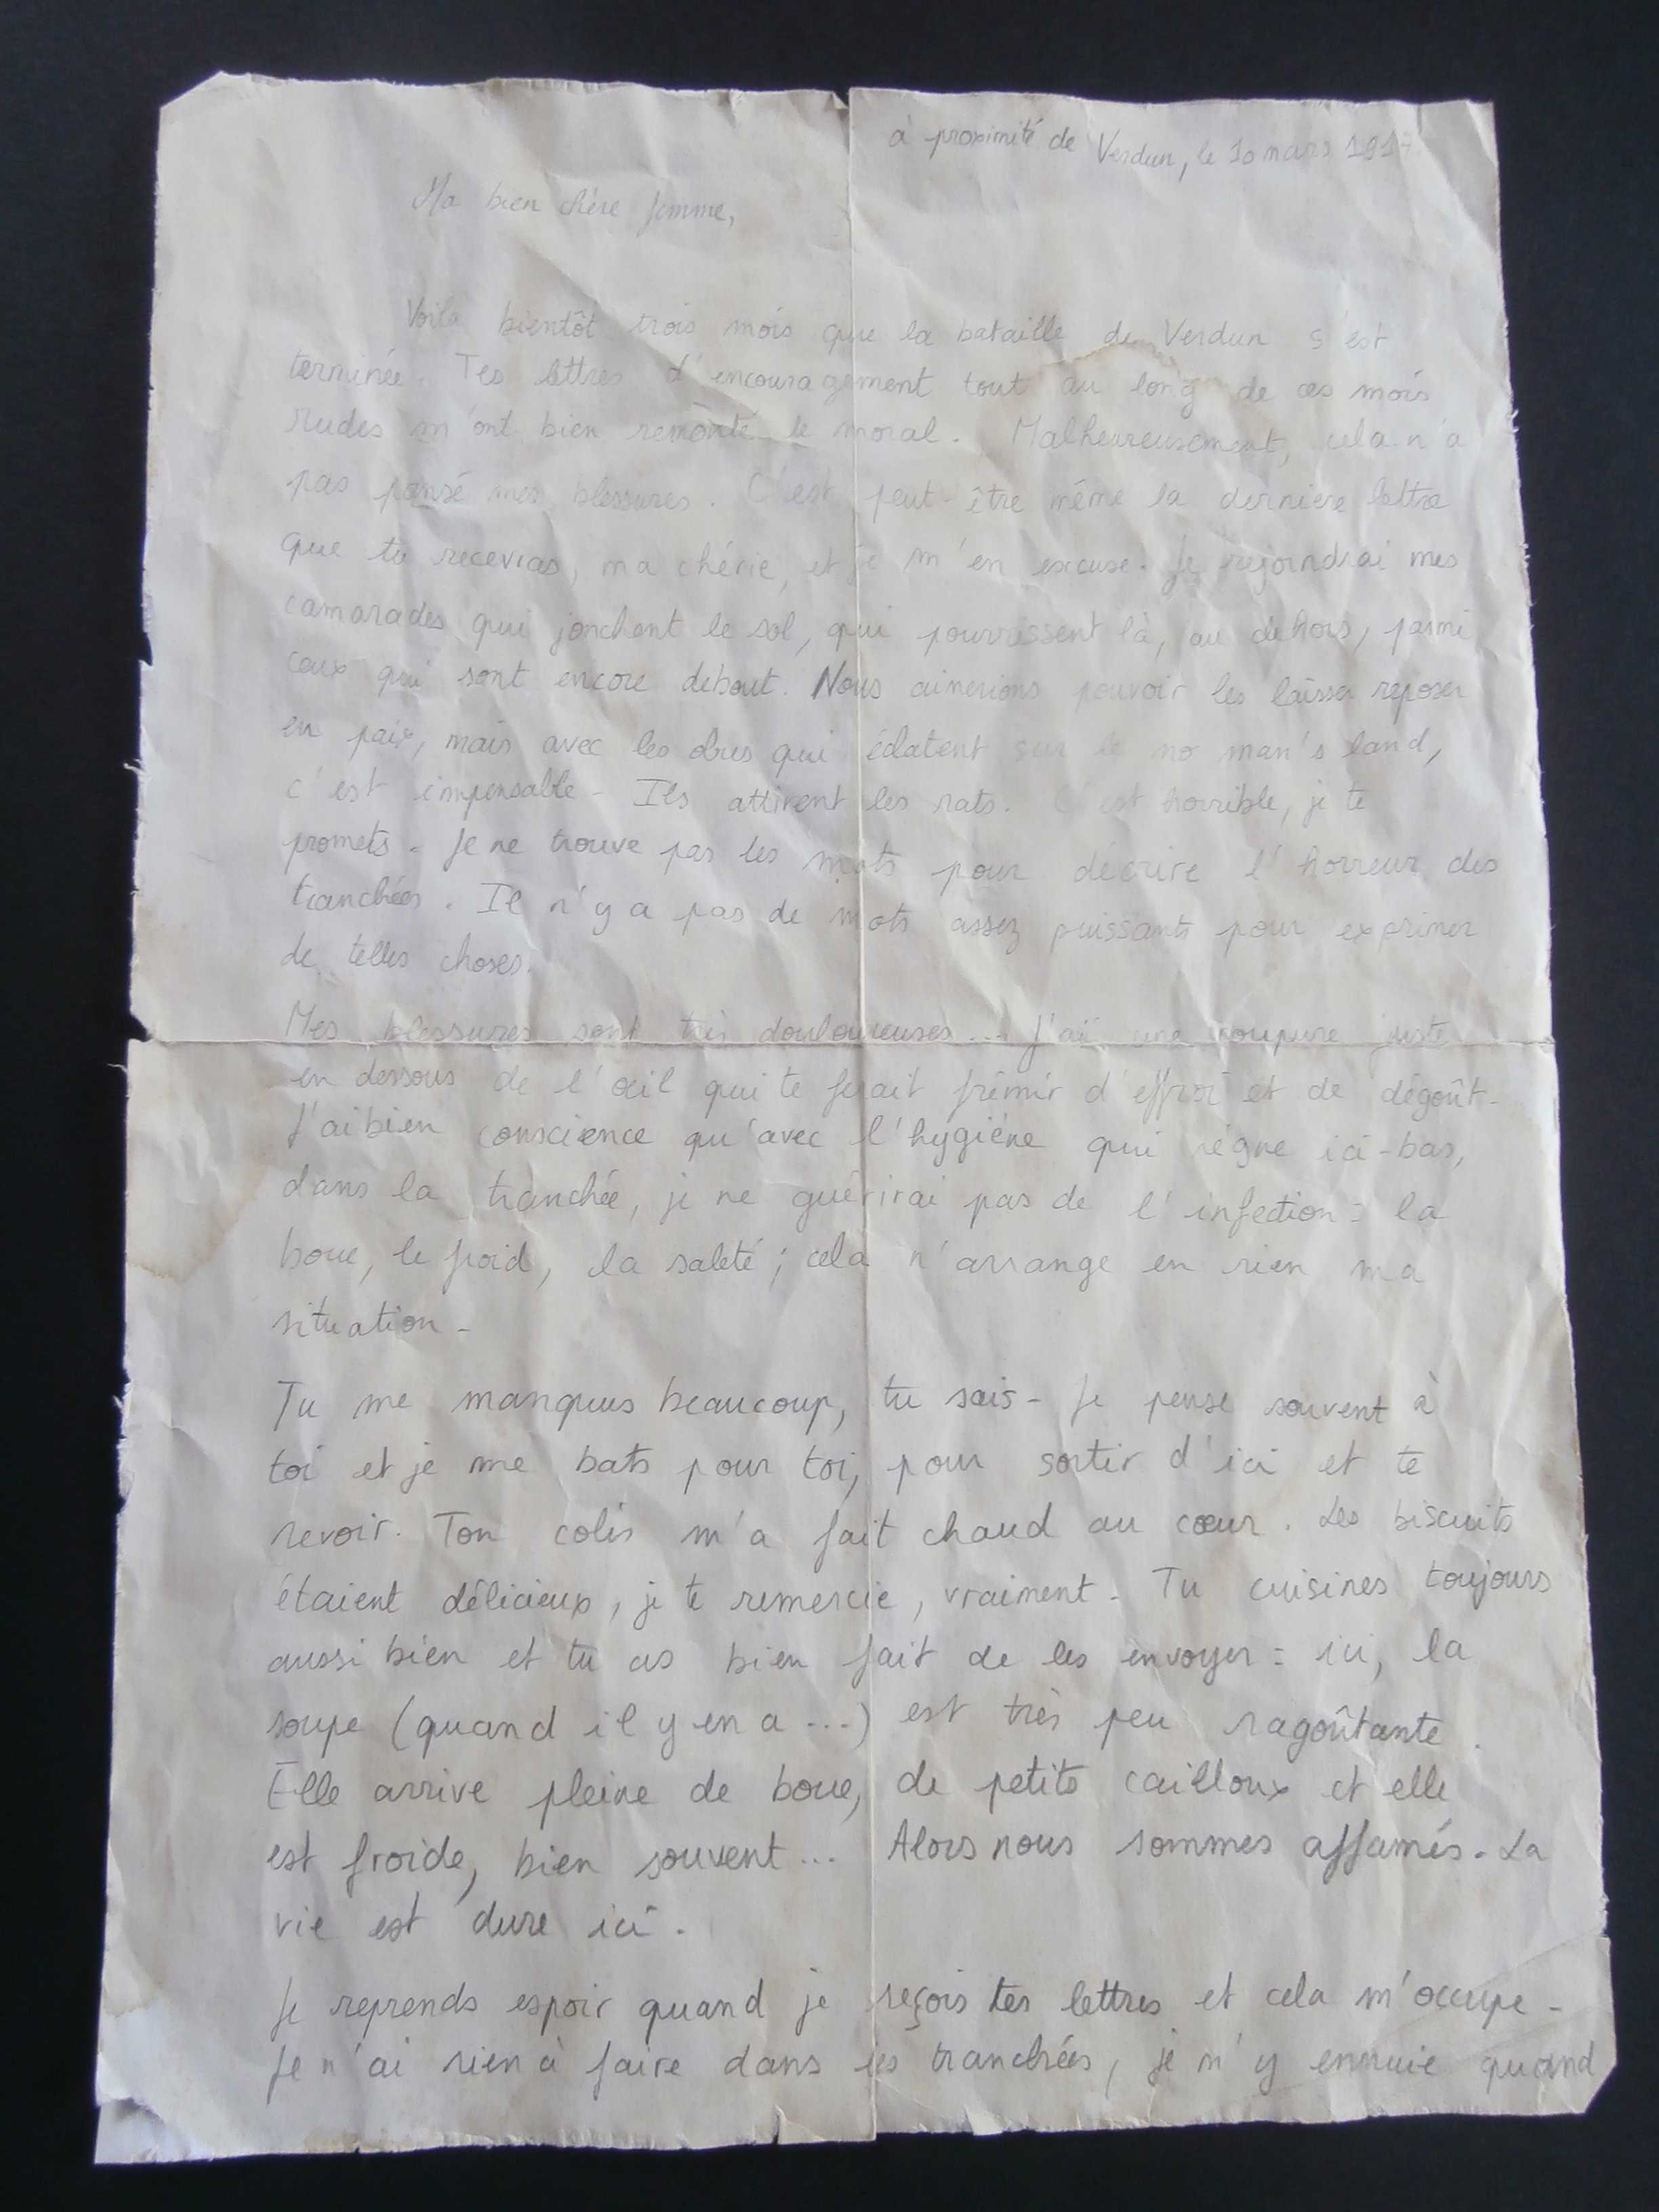 à proximité de Verdun, le 10 mars 1917
Ma bien chère femme,
Voila bientôt trois mois que la bataille de Verdun s'est
terminée. Tes lettres d'encouragement tout au long de ces mois
rudes m'ont bien remonté le moral. Malheureusement, cela n'a
pas pansé mes blessures. C'est peut-être même la derniere lettre
que tu recevras, ma chérie, et je m'en excuse. Je rejoindrai mes
camarades qui jonchent le sol, qui pourrissent là, au dehors, parmi
ceux qui sont encore debout. Nous aimerions pouvoir les laisser reposer
en paix, mais avec les obus qui éclatent sur le no man's land,
c'est impensable. Ils attirent les rats. C'est horrible, je te
promets. Je ne trouve pas les mots pour décrire l'horreur des
tranchées. Il n'y a pas de mots assez puissants pour exprimer
de telles choses.
Mes blessures sont très douloureuses... J'ai une coupure juste
en dessous de l'œil qui te ferait frémir d'effroi et de dégoût.
J'ai bien conscience qu'avec l'hygiène qui règne ici-bas,
dans la tranchée, je ne guérirai pas de l'infection : la
boue, le froid, la saleté ; cela n'arrange en rien ma
situation.
Tu me manques beaucoup, tu sais. Je pense souvent à
toi et je me bats pour toi, pour sortir d'ici et te
revoir. Ton colis m'a fait chaud au cœur. Les biscuits
étaient délicieux, je te remercie, vraiment. Tu cuisines toujours
aussi bien et tu as bien fait de les envoyer : ici, la
soupe (quand il y en a...) est très peu ragoûtante.
Elle arrive pleine de boue, de petits cailloux et elle
est froide, bien souvent... Alors nous sommes affamés. La
vie est dure ici.
Je reprends espoir quand je reçois tes lettres et cela m'occupe.
Je n'ai rien à faire dans les tranchées, je m'y ennuie quand